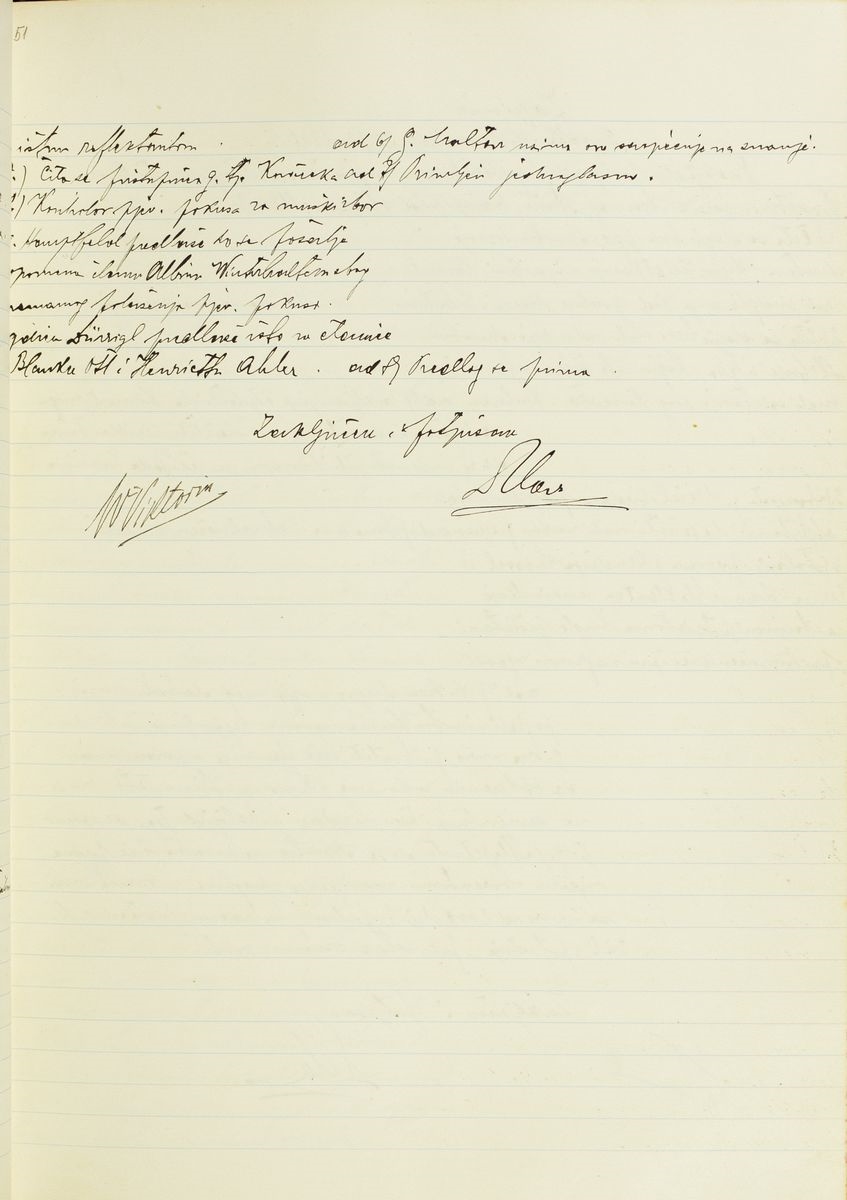 51
istom reflektantom. ad 6/ G. Walter uzima ovo saopćenje na znanje.
) Čita se pristupnica g. Hj. Kavićeka ad 7/ Primljen jednoglasno.
) Kontrolor pjev. pokusa za muški zbor
Hampfeld predlaže da se pošalje
opomena članu Albinu Winterhalteru zbog
nemarnog polaženja pjev. pokusa.
gdjica Dürrigl predlaže isto za članice
Blanku Ott i Henriettu Ahler. ad 8/ Predlog se prima.
Zaključeno i potpisano
Viktorin